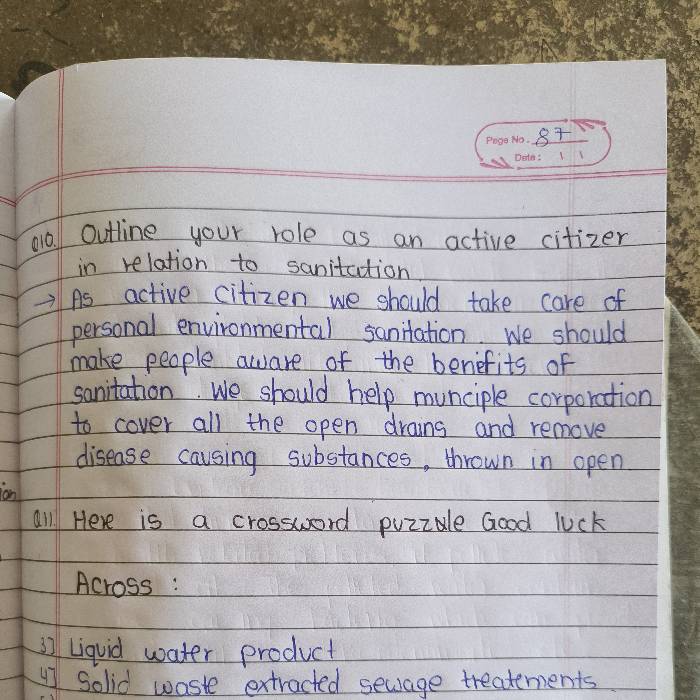 Page No. 87
Date: / /
Q10. Outline your role as an active citizer
in relation to sanitation
→ As active citizen we should take care of
personal environmental sanitation. We should
make people aware of the benefits of
sanitation. We should help munciple corporation
to cover all the open drains and remove
disease causing substances, thrown in open
ion
Q11. Here is a crossword puzzule Good luck
Across :
3] Liquid water product
4] Solid waste extracted sewage treatements